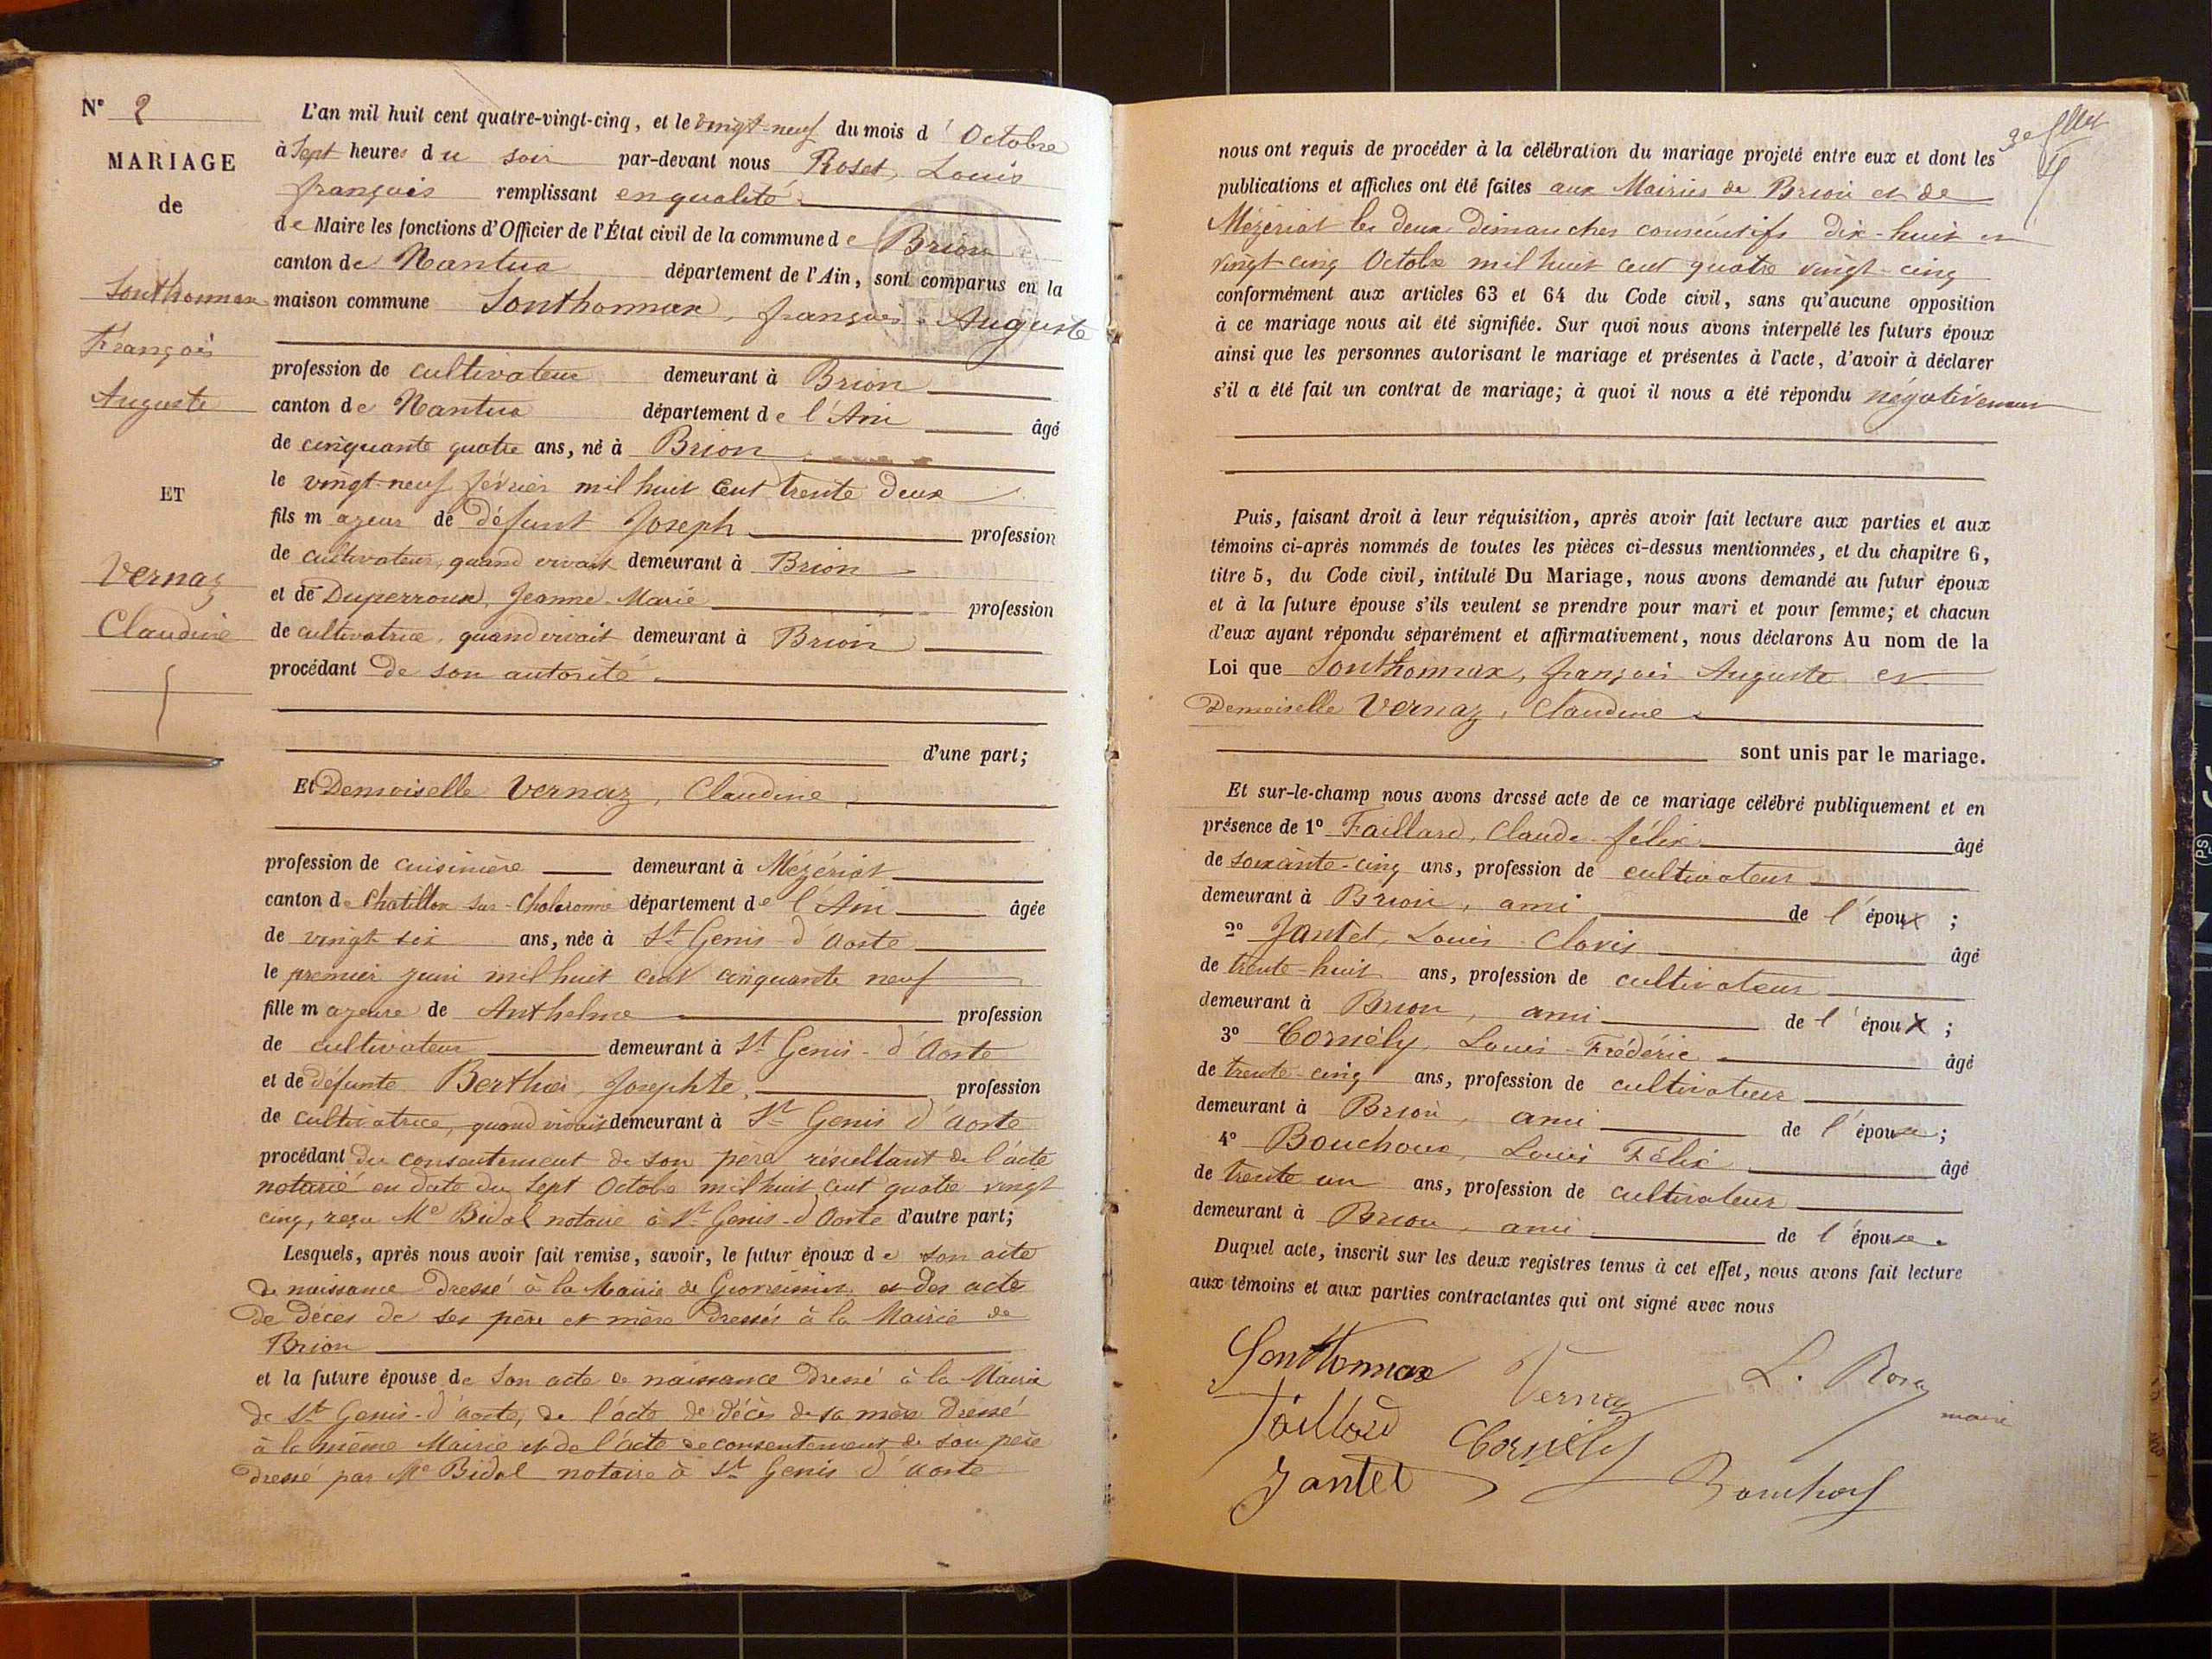 N° 2
MARIAGE
de
Sonthonnax
François
Auguste
ET
Vernaz
Claudine
L'an mil huit cent quatre-vingt-cinq, et le vingt-neuf du mois d'Octobre
à Sept heures du soir par-devant nous Roset, Louis
françois remplissant en qualité
de Maire les fonctions d'Officier de l'État civil de la commune de Brion
canton de Nantua département de l'Ain, sont comparus en la
maison commune Sonthonnax, françois Auguste
profession de cultivateur demeurant à Brion
canton de Nantua département de l'Ain âgé
de cinquante quatre ans, né à Brion
le vingt-neuf février mil huit Cent trente deux
fils majeur de défunt Joseph profession
de cultivateur, quand vivait demeurant à Brion
et de Duperroux, Jeanne-Marie profession
de cultivatrice, quand vivait demeurant à Brion
procédant de son autorité
d'une part;
Et Demoiselle Vernaz, Claudine
profession de cuisinière demeurant à Mézériat
canton de Chatillon sur-Chalaronne département de l'Ain âgée
de vingt six ans, née à St Genis-d'Aoste
le premier juin mil huit cent cinquante neuf
fille majeure de Anthelme profession
de cultivateur demeurant à St Genis-d'Aoste
et de défunte Berthier, Josephte, profession
de cultivatrice, quand vivait demeurant à St Genis d'Aoste
procédant du consentement de son père résultant de l'acte
notarié en date du Sept Octobre mil huit cent quatre vingt
cinq, reçu Me Bidal notaire à St Genis-d'Aoste d'autre part;
Lesquels, après nous avoir fait remise, savoir, le futur époux de son acte
de naissance dressé à la Mairie de et des actes
de décès de ses père et mère dressés à la Mairie de
Brion
et la future épouse de son acte de naissance dressé à la Mairie
de St Genis-d'Aoste, de l'acte de décès de sa mère dressé
à la même Mairie et de l'acte de consentement de son père
dressé par Me Bidal notaire à St Genis d'Aoste
nous ont requis de procéder à la célébration du mariage projeté entre eux et dont les
publications et affiches ont été faites aux Mairies de Brion et de
Mézériat les deux dimanches consécutifs dix-huit et
vingt-cinq Octobre mil huit cent quatre vingt-cinq
conformément aux articles 63 et 64 du Code civil, sans qu'aucune opposition
à ce mariage nous ait été signifiée. Sur quoi nous avons interpellé les futurs époux
ainsi que les personnes autorisant le mariage et présentes à l'acte, d'avoir à déclarer
s'il a été fait un contrat de mariage; à quoi il nous a été répondu négativement
Puis, faisant droit à leur réquisition, après avoir fait lecture aux parties et aux
témoins ci-après nommés de toutes les pièces ci-dessus mentionnées, et du chapitre 6,
titre 5, du Code civil, intitulé Du Mariage, nous avons demandé au futur époux
et à la future épouse s'ils veulent se prendre pour mari et pour femme; et chacun
d'eux ayant répondu séparément et affirmativement, nous déclarons Au nom de la
Loi que Sonthonnax, françois Auguste et
Demoiselle Vernaz, Claudine
sont unis par le mariage.
Et sur-le-champ nous avons dressé acte de ce mariage célébré publiquement et en
présence de 1° Faillard, Claude félix âgé
de soixante-cinq ans, profession de cultivateur
demeurant à Brion, ami de l'époux;
2° Jantet, Louis Clovis âgé
de trente-huit ans, profession de cultivateur
demeurant à Brion, ami de l'époux;
3° Cornély, Louis-Frédéric âgé
de trente-cinq ans, profession de cultivateur
demeurant à Brion, ami de l'épouse;
4° Bouchoux, Louis Félix âgé
de trente un ans, profession de cultivateur
demeurant à Brion, ami de l'épouse.
Duquel acte, inscrit sur les deux registres tenus à cet effet, nous avons fait lecture
aux témoins et aux parties contractantes qui ont signé avec nous
Sonthonnax Vernaz L. Roset
maire
Faillard Cornély
Jantet Bouchoux